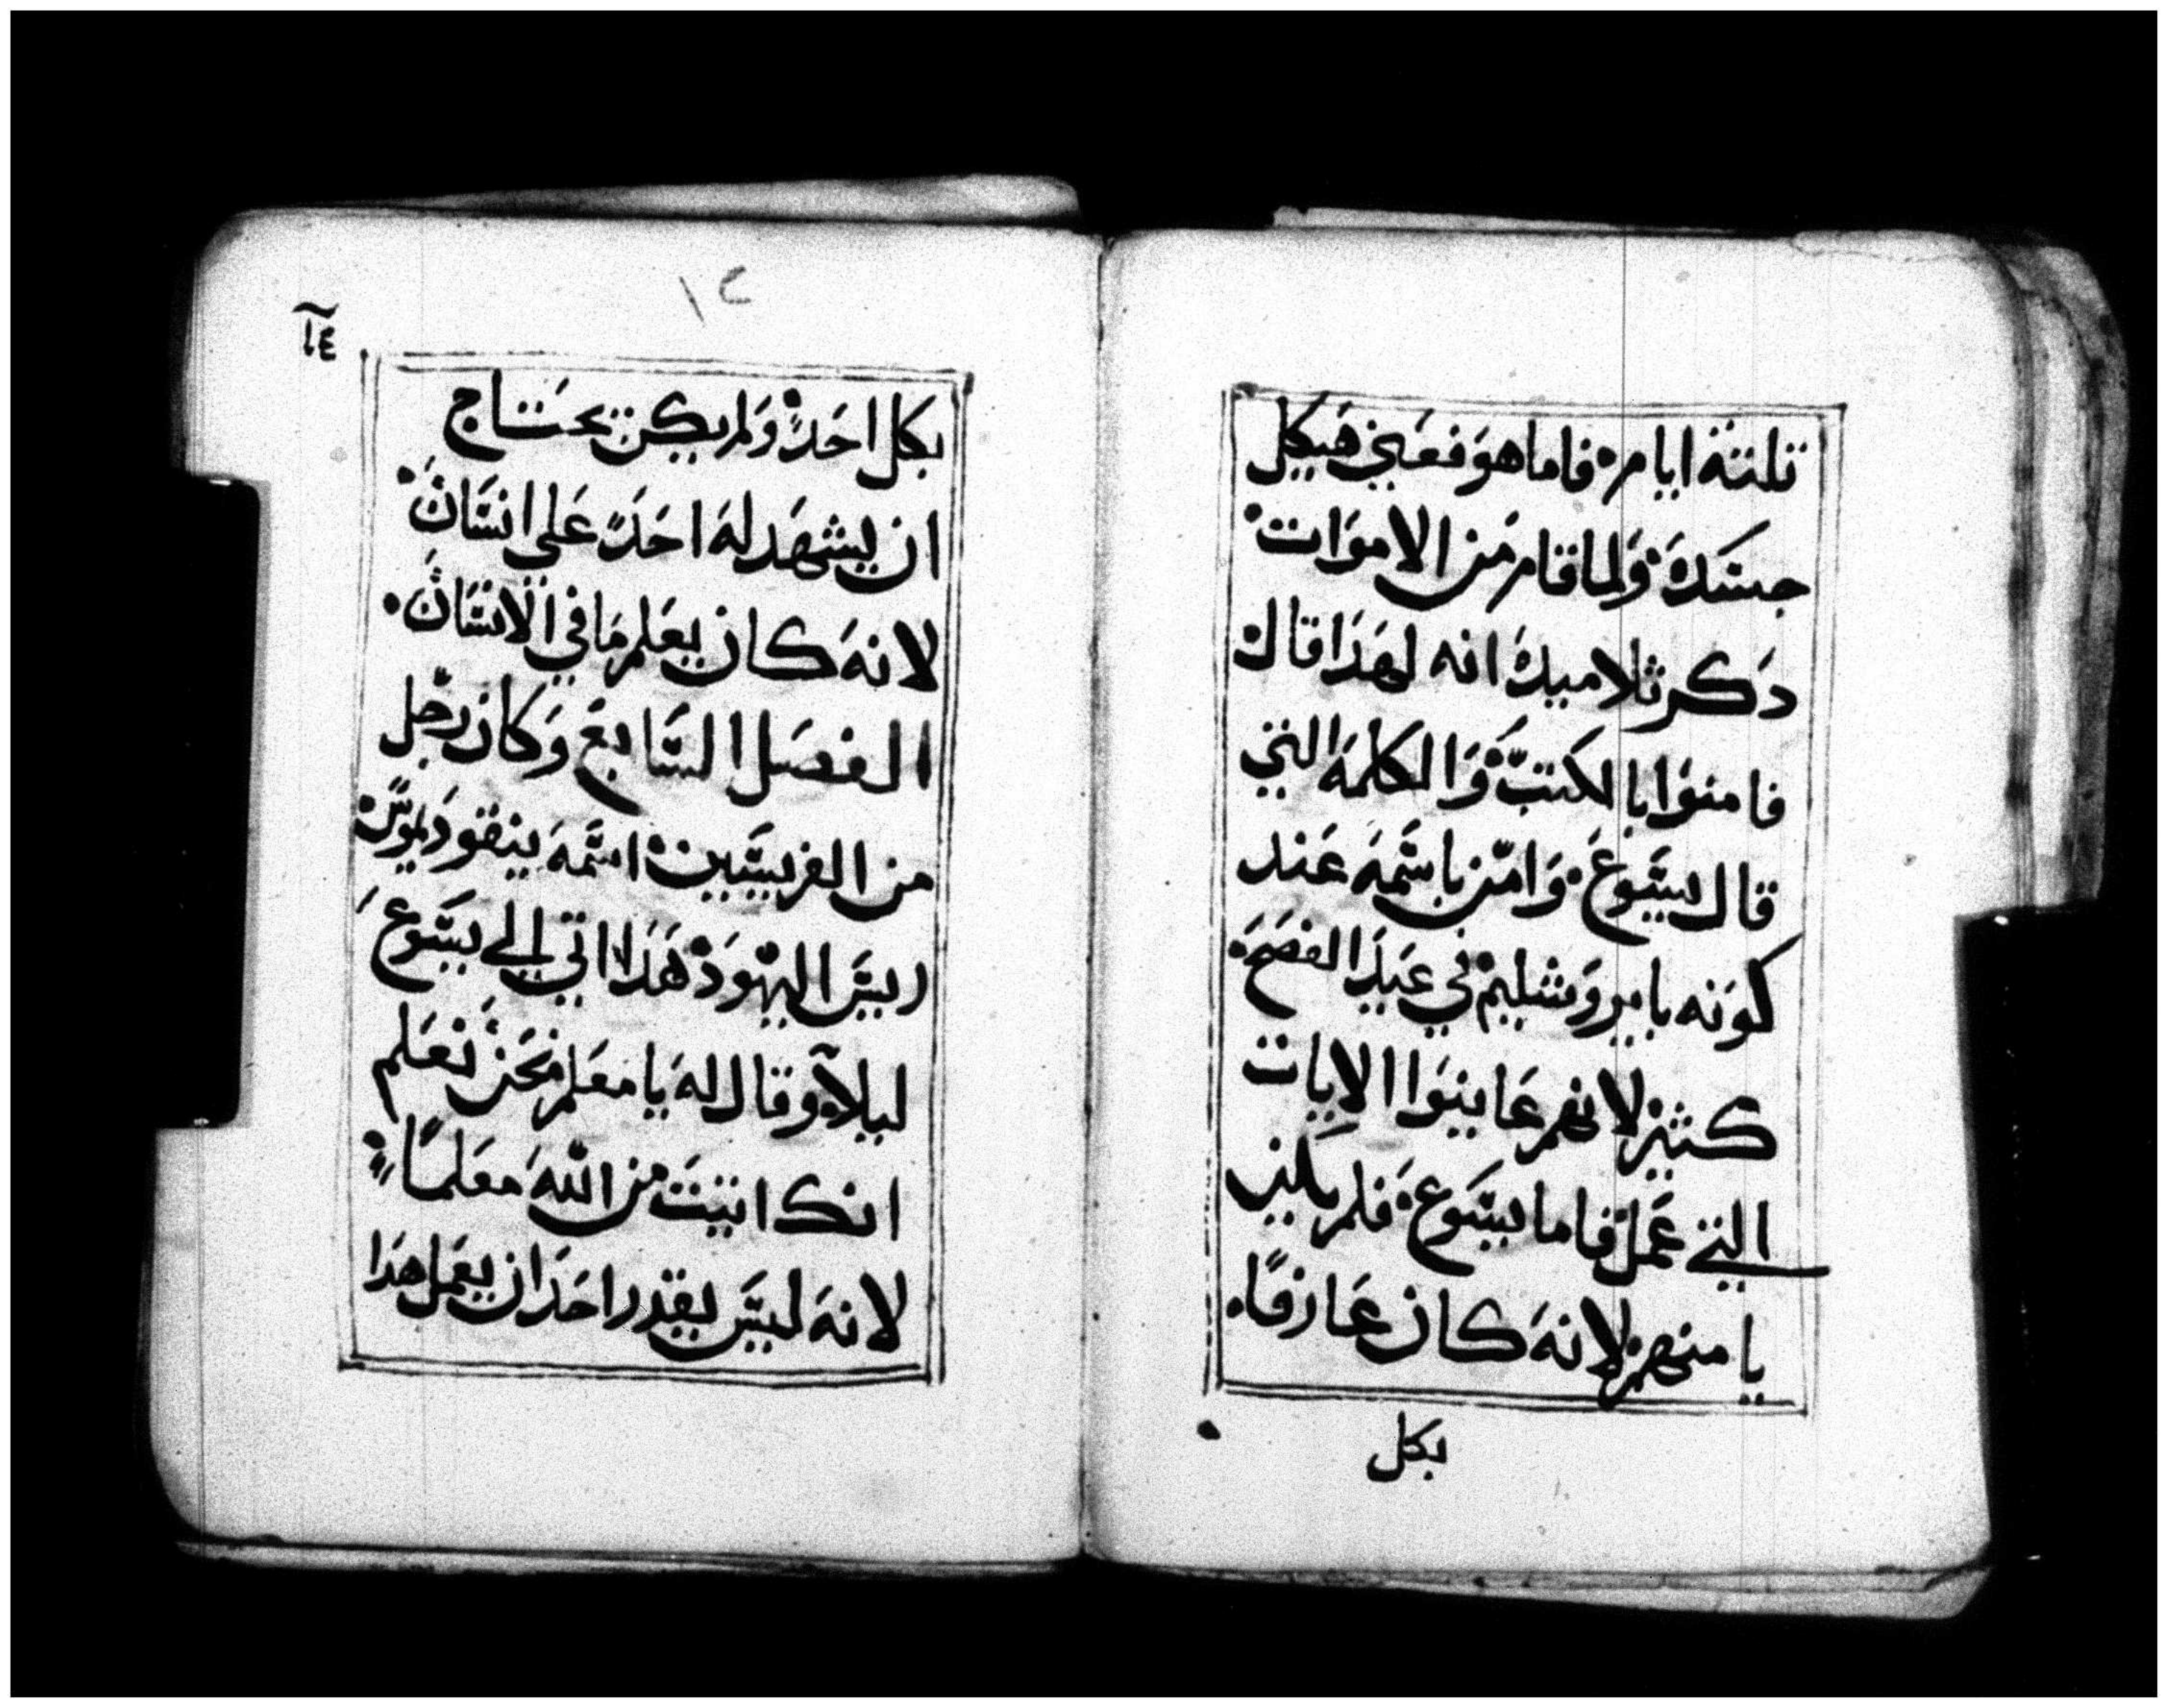 تلتة ايام. فاما هو فعني هيكل
جسده. ولما قام من الاموات.
دكر تلاميده انه لهدا قال.
فامنوا بالكتب. والكلمة التي
قال يسوع. وامن باسمه عند
كونه بايروشليم. في عيد الفصح.
كتير. لانهم عاينوا الايات
التي عمل. فاما يسوع. فلم يكن
يامنهم. لانه كان عارفا.
بكل
١٢
بكل احد. ولم يكن يحتاج
ان يشهد له احد على انسان.
لانه كان يعلم ما في الانسان.
الفصل السابع وكان رجل
من الفريسيين. اسمه ينقوديموس.
رييس اليهود. هدا اتي الي يسوع
ليلا. وقال له يا معلم نحن نعلم
انك اتيت من الله معلما.
لانه ليس يقدر احد ان يعمل هدا